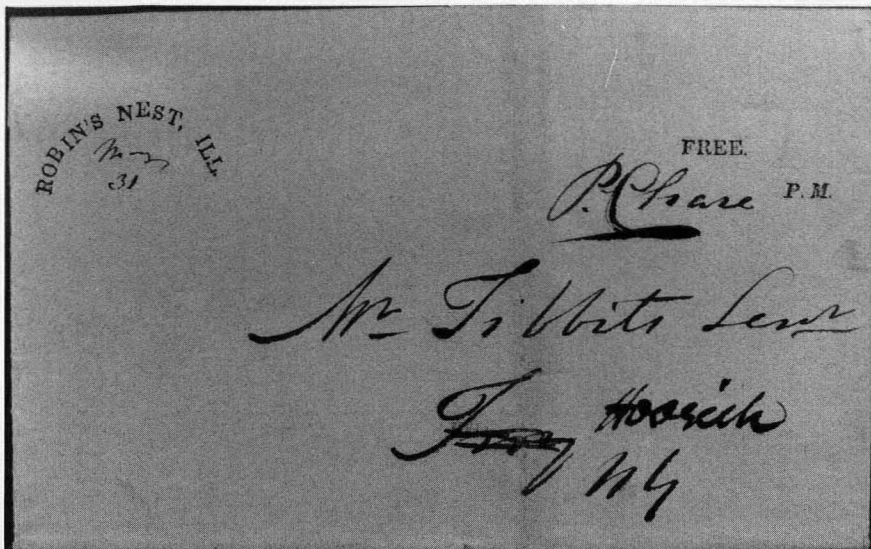 ROBIN'S NEST, ILL
May
31
FREE.
P. Chase P. M.
Mr Tibbits Senr
Troy Hoosick
NY